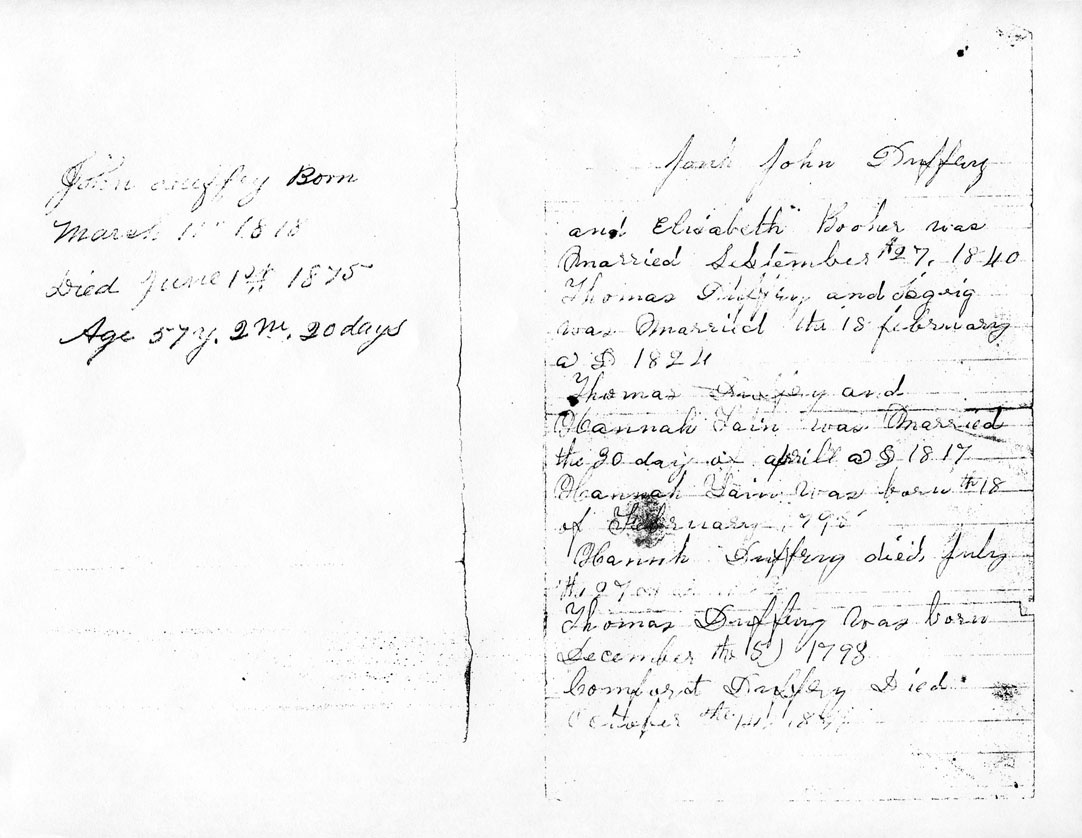 John Duffey Born
March 11th 1818
Died June 1st 1875
Age 57 y. 2 m. 20 days
John Duffery
and Elisabeth Booher was
Married September th 27, 1840
Thomas Duffery and
was Married the 18 february
a D 1824
Thomas Duffery and
Hannah Fain was Married
the 30 day of aprill a D 1817
Hannah Fain was born th 18
of February
Hannh Duffery died July
the 27
Thomas Duffery was born
December the 5) 1798
Comfort Duffery Died
October the 14